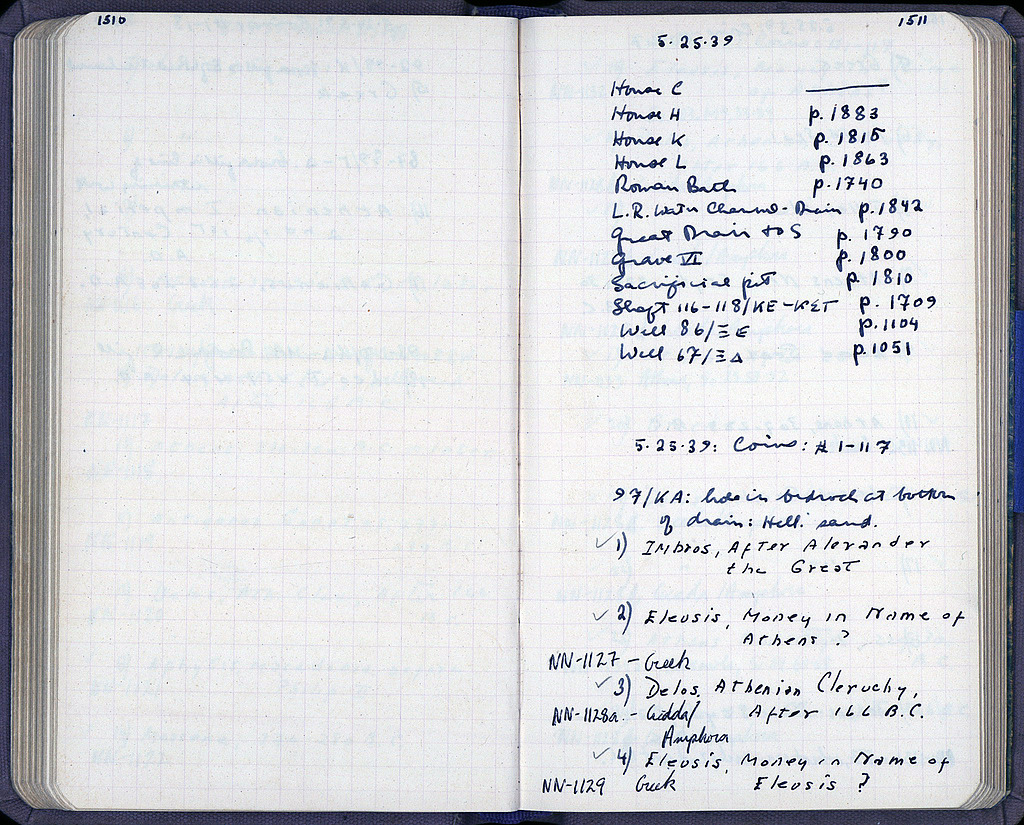 1510
1511
5·25·39
House C ———
House H p. 1883
House K p. 1815
House L p. 1863
Roman Bath p. 1740
L.R. Water Channel-Drain p. 1842
Great Drain to S p. 1790
Grave VI p. 1800
Sacrificial pit p. 1810
Shaft 116-118/KE-KET p. 1709
Well 86/ΞE p. 1104
Well 67/ΞΔ p. 1051
5·25·39: Coins: # 1-117
97/KA: hole in bedrock at bottom
of drain: Hell. sand.
✓ 1) Imbros, After Alexander
the Great
✓ 2) Eleusis, Money in Name of
Athens ?
NN-1127 - Greek
✓ 3) Delos, Athenian Cleruchy,
NN-1128a - After 166 B.C.
Amphora
✓ 4) Eleusis, Money in Name of
NN-1129 Greek Eleusis ?